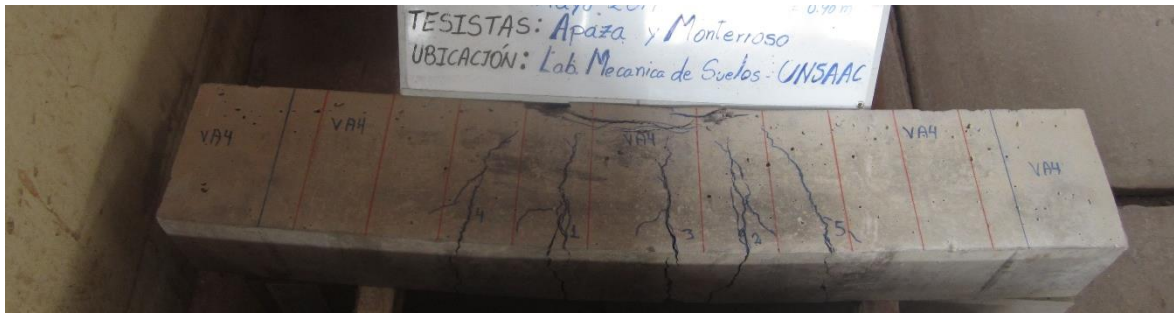 TESISTAS: Apaza y Monterroso
UBICACIÓN: Lab. Mecanica de Suelos - UNSAAC
VA4
VA4
VA4
VA4
VA4
4
1
3
2
5